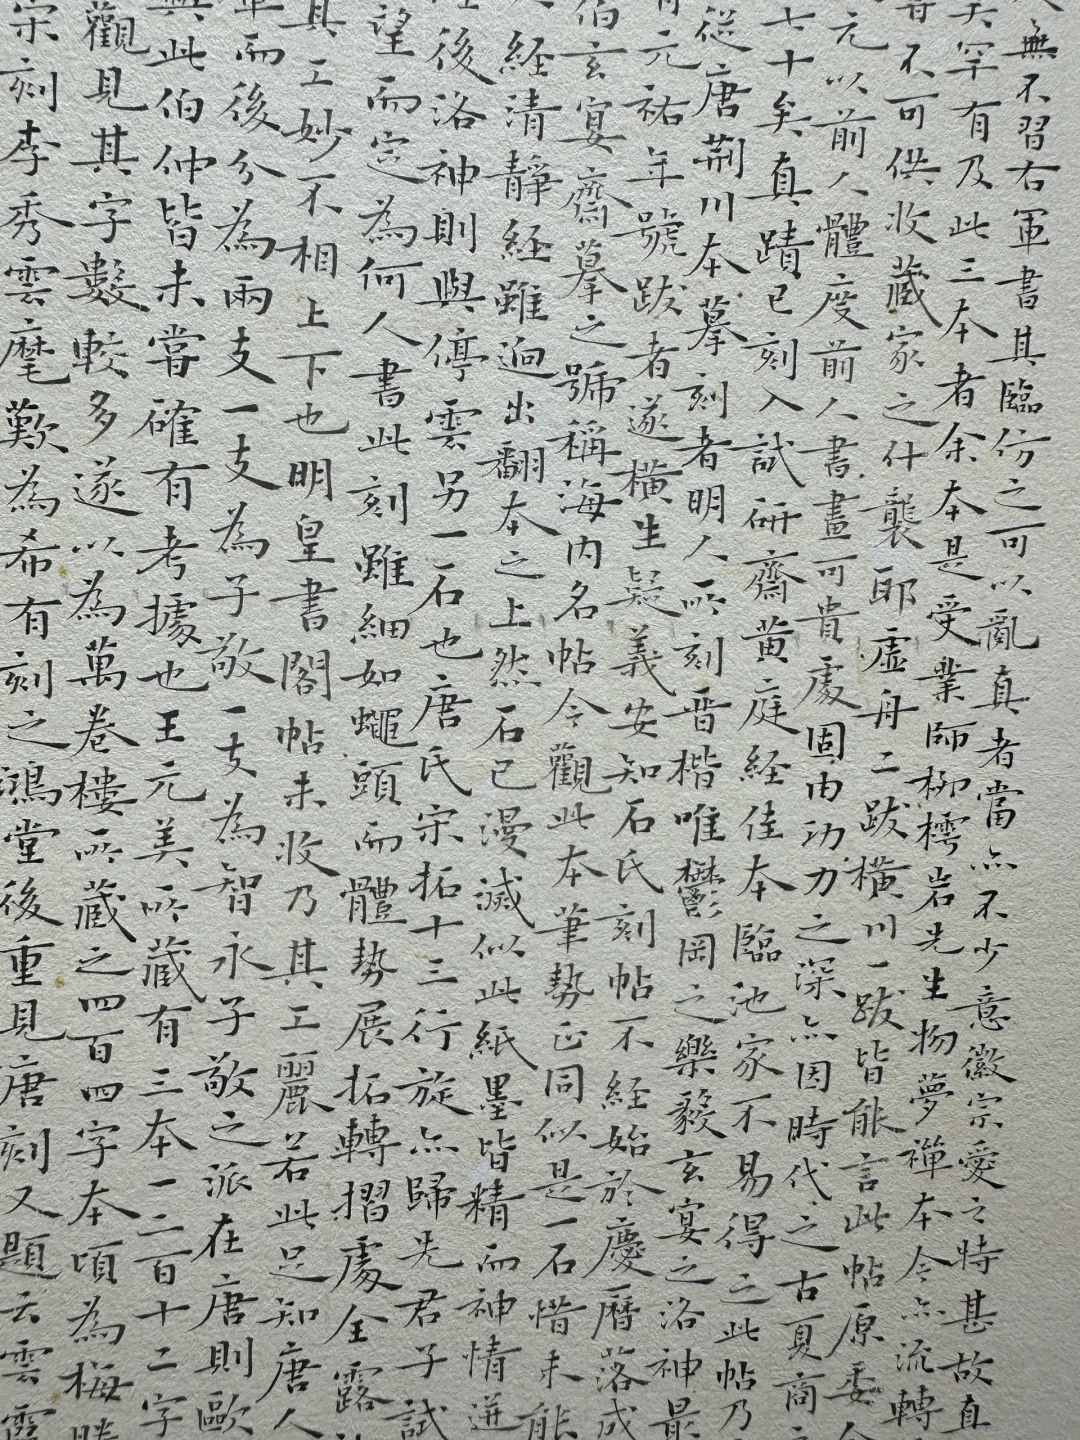 無不習右軍書其臨仿之可以亂真者當亦不少意徽宗愛之特甚故直
罕有及此三本者余本是受業師柳樗岩先生物夢禪本今亦流轉
不可供收藏家之什襲耶虛舟二跋橫川一跋皆能言此帖原委
元以前人體度前人書畫可貴處固由功力之深亦因時代之古夏商
七十矣真蹟已刻入試研齋黃庭経佳本臨池家不易得之此帖乃
從唐荆川本摹刻者明人所刻晋楷唯鬱岡之樂毅玄宴之洛神最
元祐年號跋者遂橫生疑義安知石氏刻帖不経始於慶曆落成
伯玄宴齋摹之號稱海内名帖今觀此本筆勢正同似是一石惜未能
経清靜経雖逈出翻本之上然石已漫滅似此紙墨皆精而神情迸
後洛神則與停雲另一石也唐氏宋拓十三行旋亦歸先君子試
望而定為何人書此刻雖細如蠅頭而體勢展拓轉摺處全露
其工妙不相上下也明皇書閣帖未收乃其工麗若此足知唐人
而後分為兩支一支為子敬一支為智永子敬之派在唐則歐
此伯仲皆未嘗確有考據也王元美所藏有三本一二百十二字
觀見其字數較多遂以為萬卷樓所藏之四百四字本頃為梅
宋刻李秀雲麾歎為希有刻之鴻堂後重見唐刻又題云雲